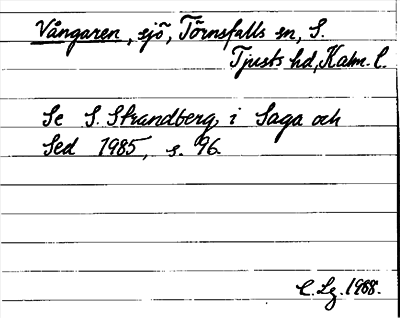 Vångaren, sjö, Törnsfalls sn, S.
Tjusts hd, Kalm. l.
Se S. Strandberg, i Saga och
Sed 1985, s. 96.
C. Lg. 1988.